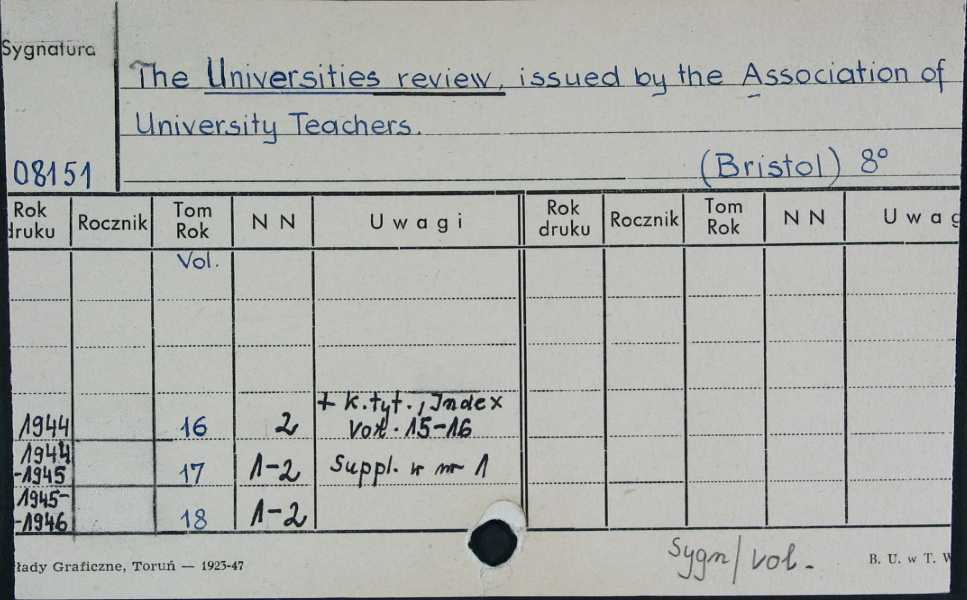 Sygnatura
The Universities review, issued by the Association of
University Teachers.
08151
(Bristol) 8°
Rok druku Rocznik Tom Rok N N Uwagi Rok druku Rocznik Tom Rok N N Uwag
Vol.
+ k.tyt., Index
1944 16 2 Vol. 15-16
1944
-1945 17 1-2 Suppl. w nr 1
1945-
-1946 18 1-2
Sygn/vol.
łady Graficzne, Toruń — 1923-47
B. U. w T. W